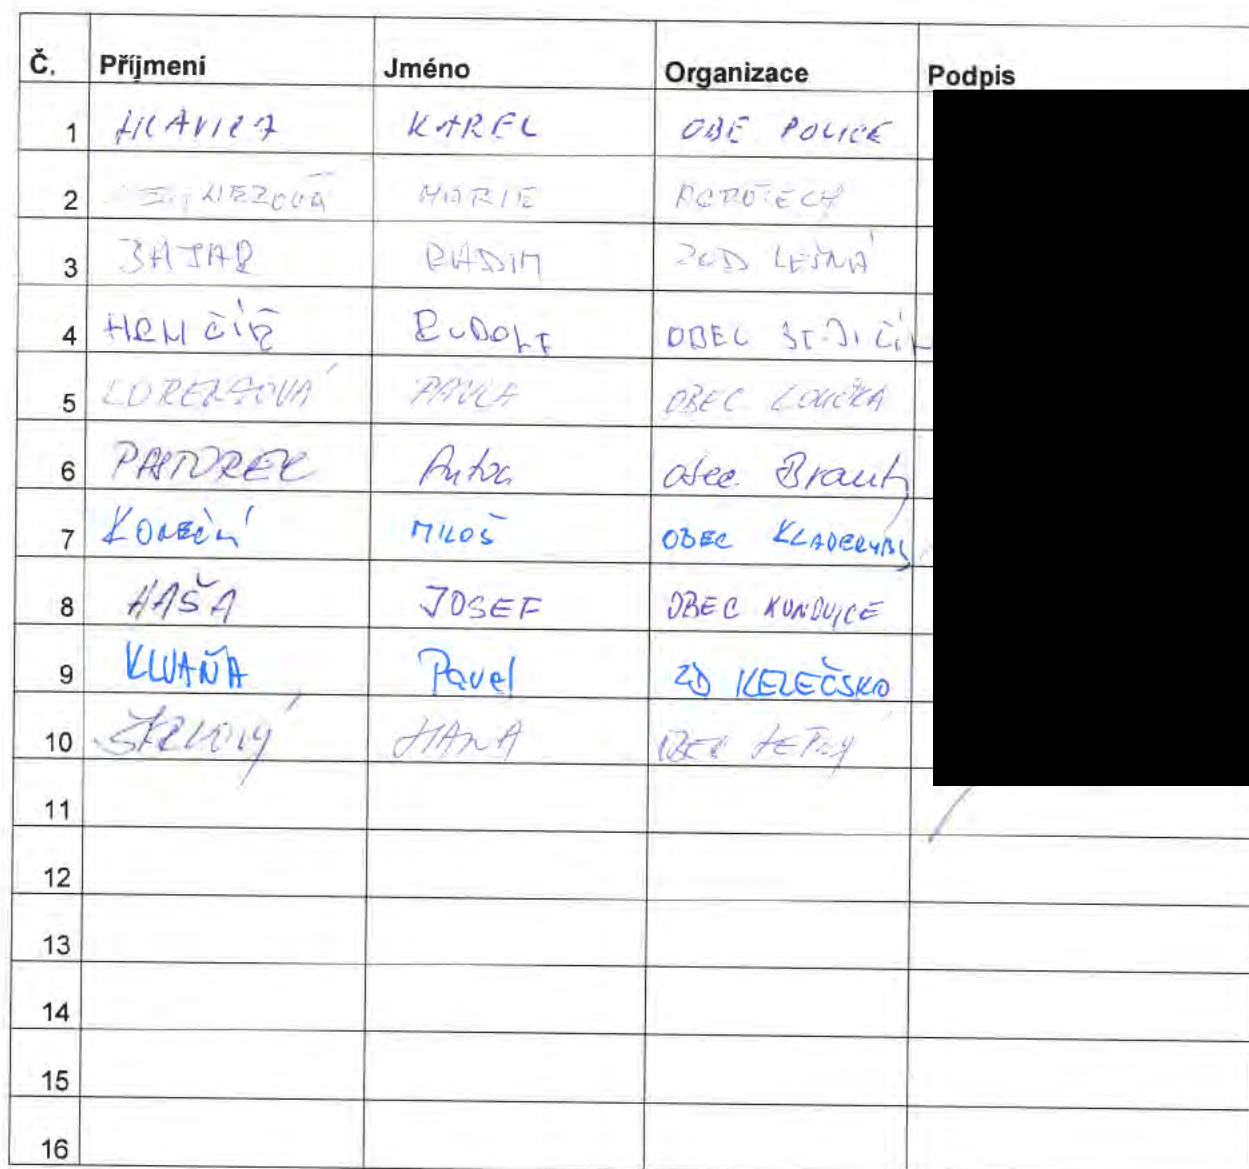 Č. Příjmení Jméno Organizace Podpis
1 HLAVICA KAREL OBE POLICE
2 MARIE AGROTECH
3 BAJAR RADIM ZOD LEŠNÁ
4 HRNČÍŘ RUDOLF OBEC
5 PAVLA OBEC LOUČKA
6 PASTOREK obec Branky
7 KONEČNÝ MILOŠ OBEC KLADERUBY
8 HAŠA JOSEF OBEC KUNOVICE
9 KLVAŇA Pavel ZD KELEČSKO
10 HANA OBEC
11
12
13
14
15
16